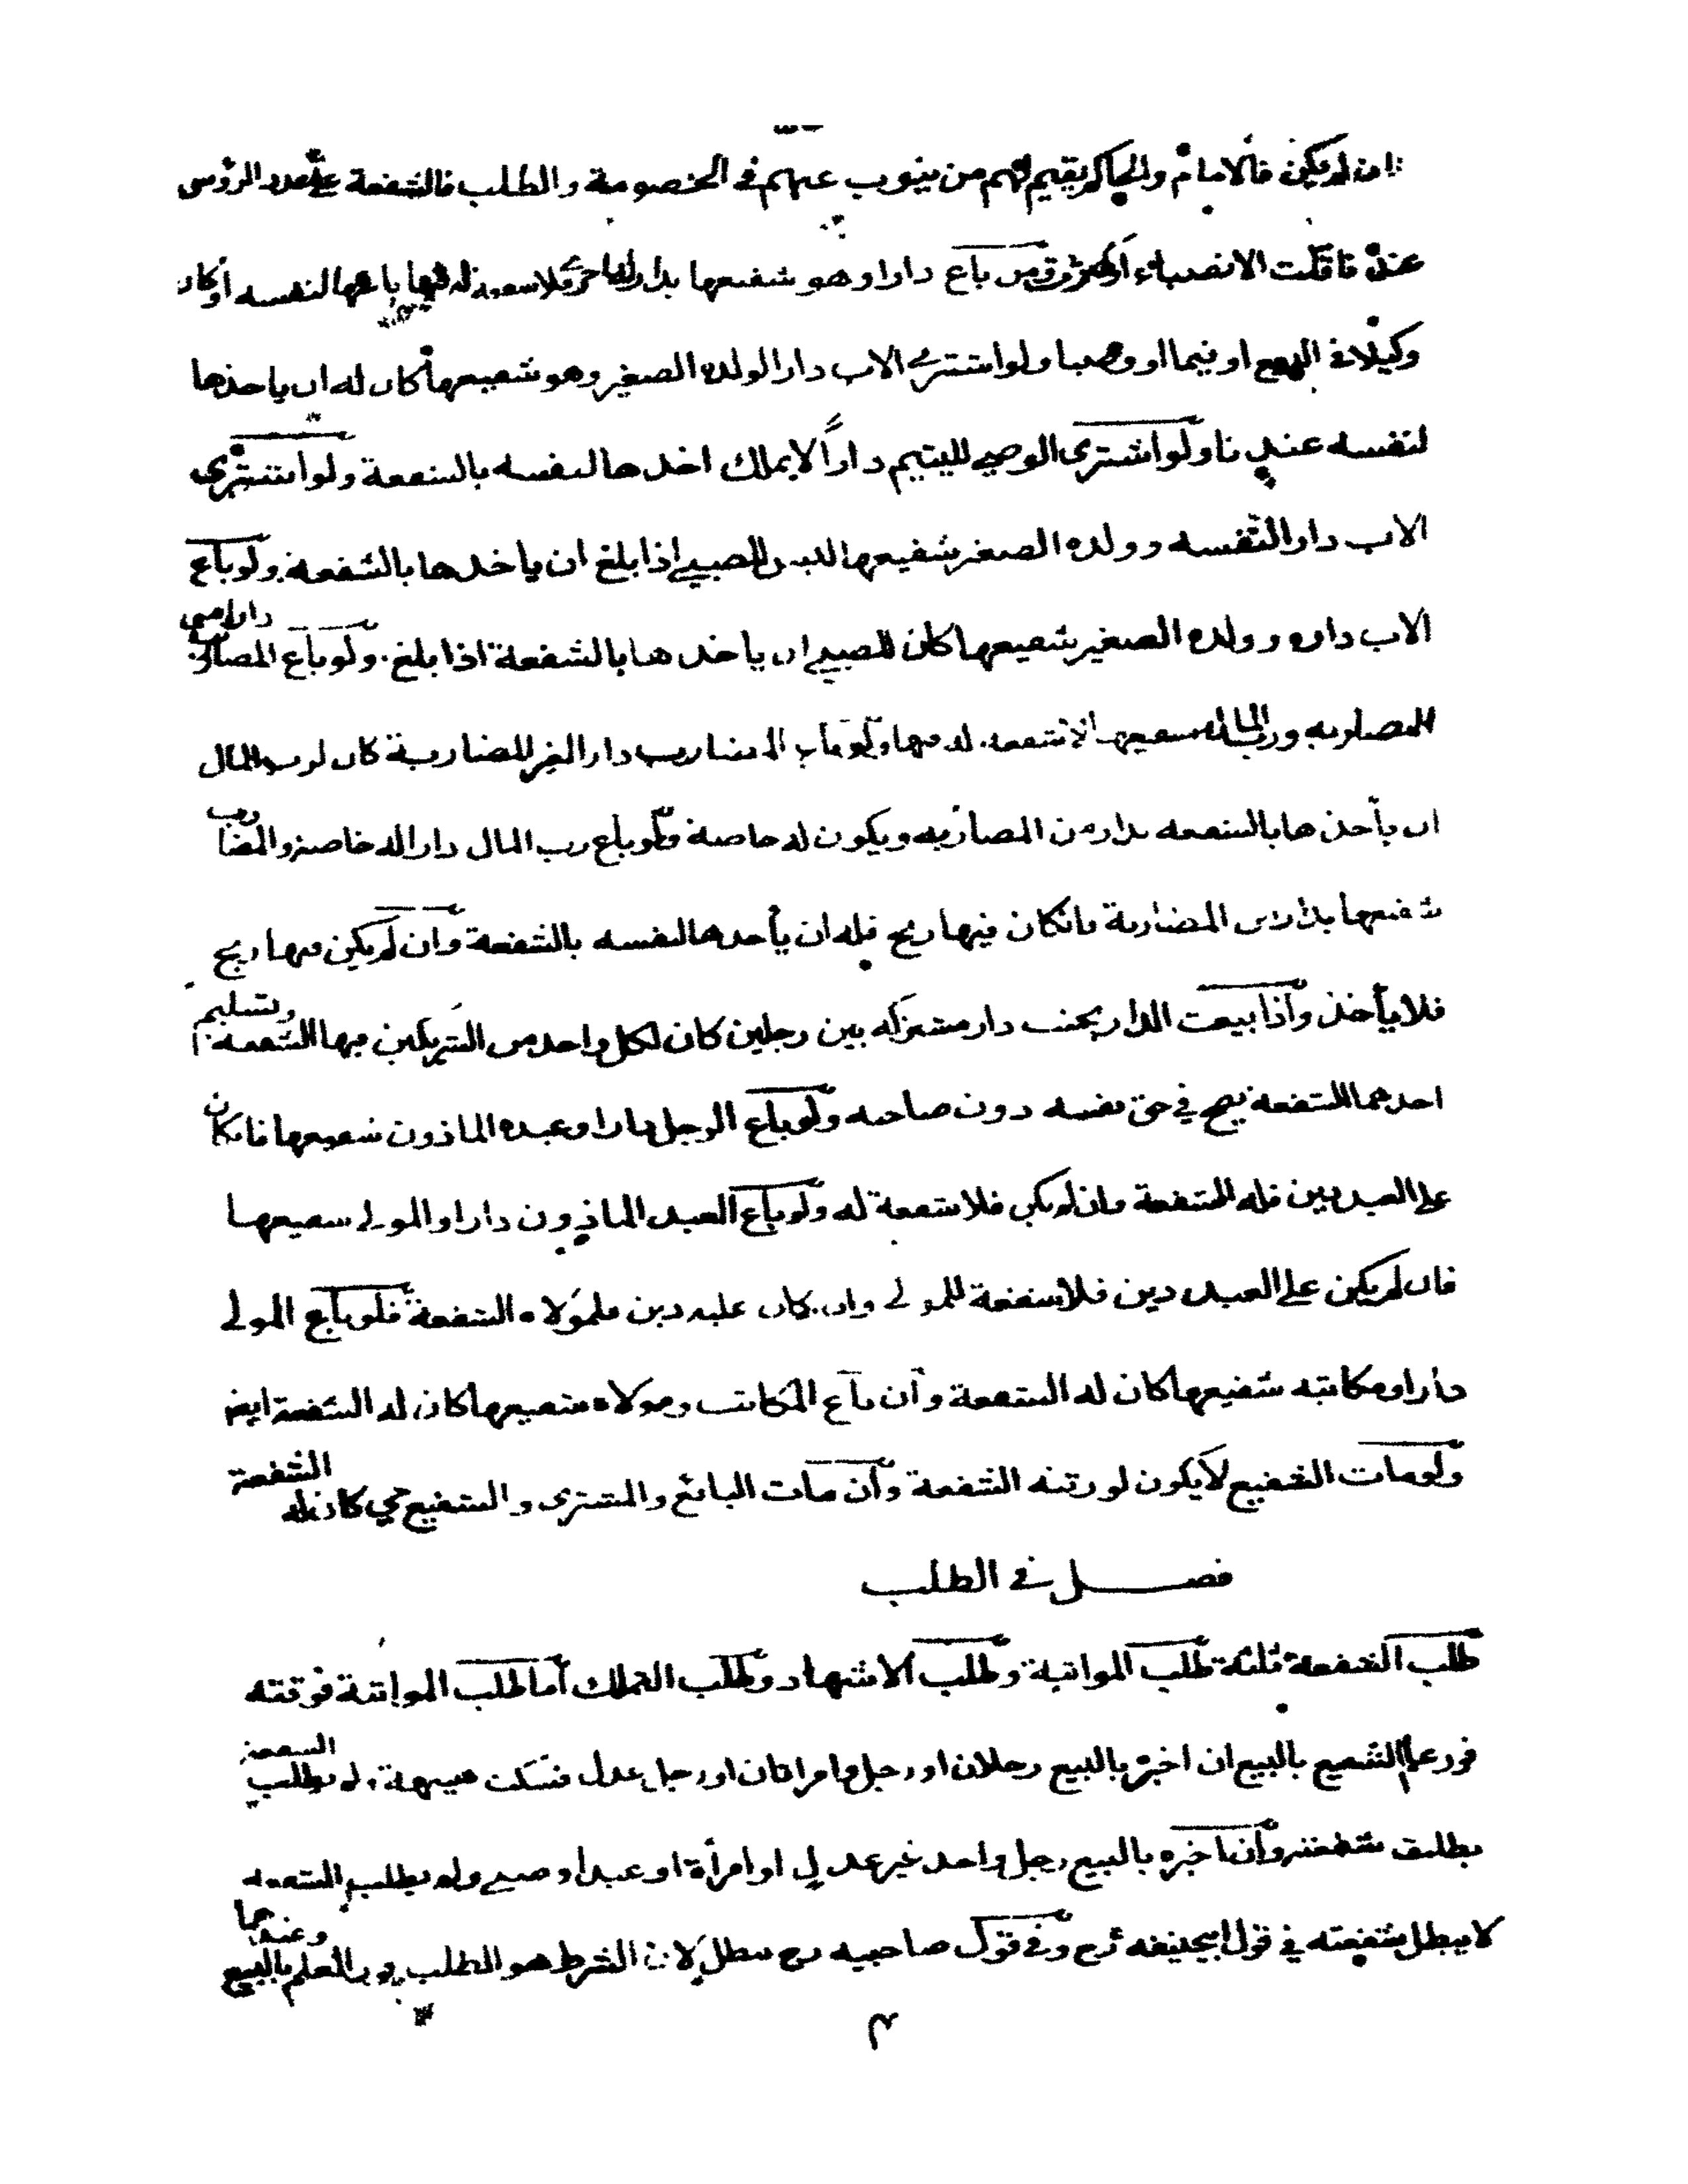 فان لم يكن فالامام والحاكم يقيم لهم من ينوب عنهم في الخصومة والطلب فالشفعة على عدد الرؤس
عندنا قلت الانصباء او كثرت ومن باع دارا وهو شفيعها بدار اخرى فلا شفعة له فيها باعها لنفسه او كان
وكيلا في البيع او وصيا ولو اشترى الاب دارا لولده الصغير وهو شفيعها كان له ان ياخذها
لنفسه عندنا ولو اشترى الوصي لليتيم دارا لا يملك اخذها لنفسه بالشفعة ولو اشترى
الاب دارا لنفسه وولده الصغير شفيعها ليس للصبي اذا بلغ ان ياخذها بالشفعة ولو باع
الاب داره وولده الصغير شفيعها كان للصبي ان ياخذها بالشفعة اذا بلغ ولو باع المضارب دارا من
المضاربه ورب المال شفيعها لا شفعه له فيها ولو باع المضارب دارا لغير المضاربة كان لرب المال
ان يأخذها بالشفعه بدار من المضاربه ويكون له خاصة ولو باع رب المال دارا له خاصة والمضارب
شفيعها بدار من المضاربة فان كان فيها ربح فله ان يأخذها لنفسه بالشفعة وان لم يكن فيها ربح
فلا يأخذ واذا بيعت الدار بجنب دار مشتركه بين رجلين كان لكل واحد من الشريكين فيها الشفعة وتسليم
احدهما الشفعة يصح في حق نفسه دون صاحبه ولو باع الرجل دارا وعبده الماذون شفيعها فان كان
على العبد دين فله الشفعة وان لم يكن فلا شفعة له ولو باع العبد الماذون دارا والمولى شفيعها
فان لم يكن على العبد دين فلا شفعة للمولى وان كان عليه دين فلمولاه الشفعة فلو باع المولى
دارا ومكاتبه شفيعها كان له الشفعة وان باع المكاتب ومولاه شفيعها كان له الشفعة ايضا
ولو مات الشفيع لا يكون لورثته الشفعة وان مات البائع والمشترى والشفيع حي كان له الشفعة
فصل في الطلب
طلب الشفعة ثلثة طلب المواثبة وطلب الاشهاد وطلب التملك اما طلب المواثبة فوقته
فور علم الشفيع بالبيع ان اخبره بالبيع رجلان او رجل وامراتان او رجل عدل فسكت هنيهة ولم يطلب الشفعة
بطلت شفعته وان اخبره بالبيع رجل واحد غير عدل او امرأة او عبد او صبي ولم يطلب الشفعه
لا يبطل شفعته في قول ابيحنيفه رح وفي قول صاحبيه رح يبطل لان الشرط هو الطلب بعد العلم بالبيع وعندهما